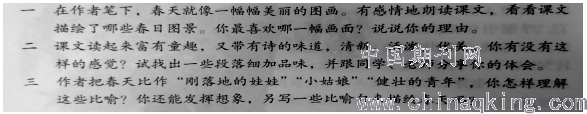 一 在作者笔下，春天就像一幅幅美丽的图画。有感情地朗读课文，看看课文
描绘了哪些春日图景。你最喜欢哪一幅画面？说说你的理由。
二 课文读起来富有童趣，又带有诗的味道，清 你有没有这
样的感觉？试找出一些段落细加品味，并跟同学 分享你的体会。
三 作者把春天比作“刚落地的娃娃”“小姑娘”“健壮的青年”，你怎样理解
这些比喻？你还能发挥想象，另写一些比喻
中国期刊网
www.chinaqking.com